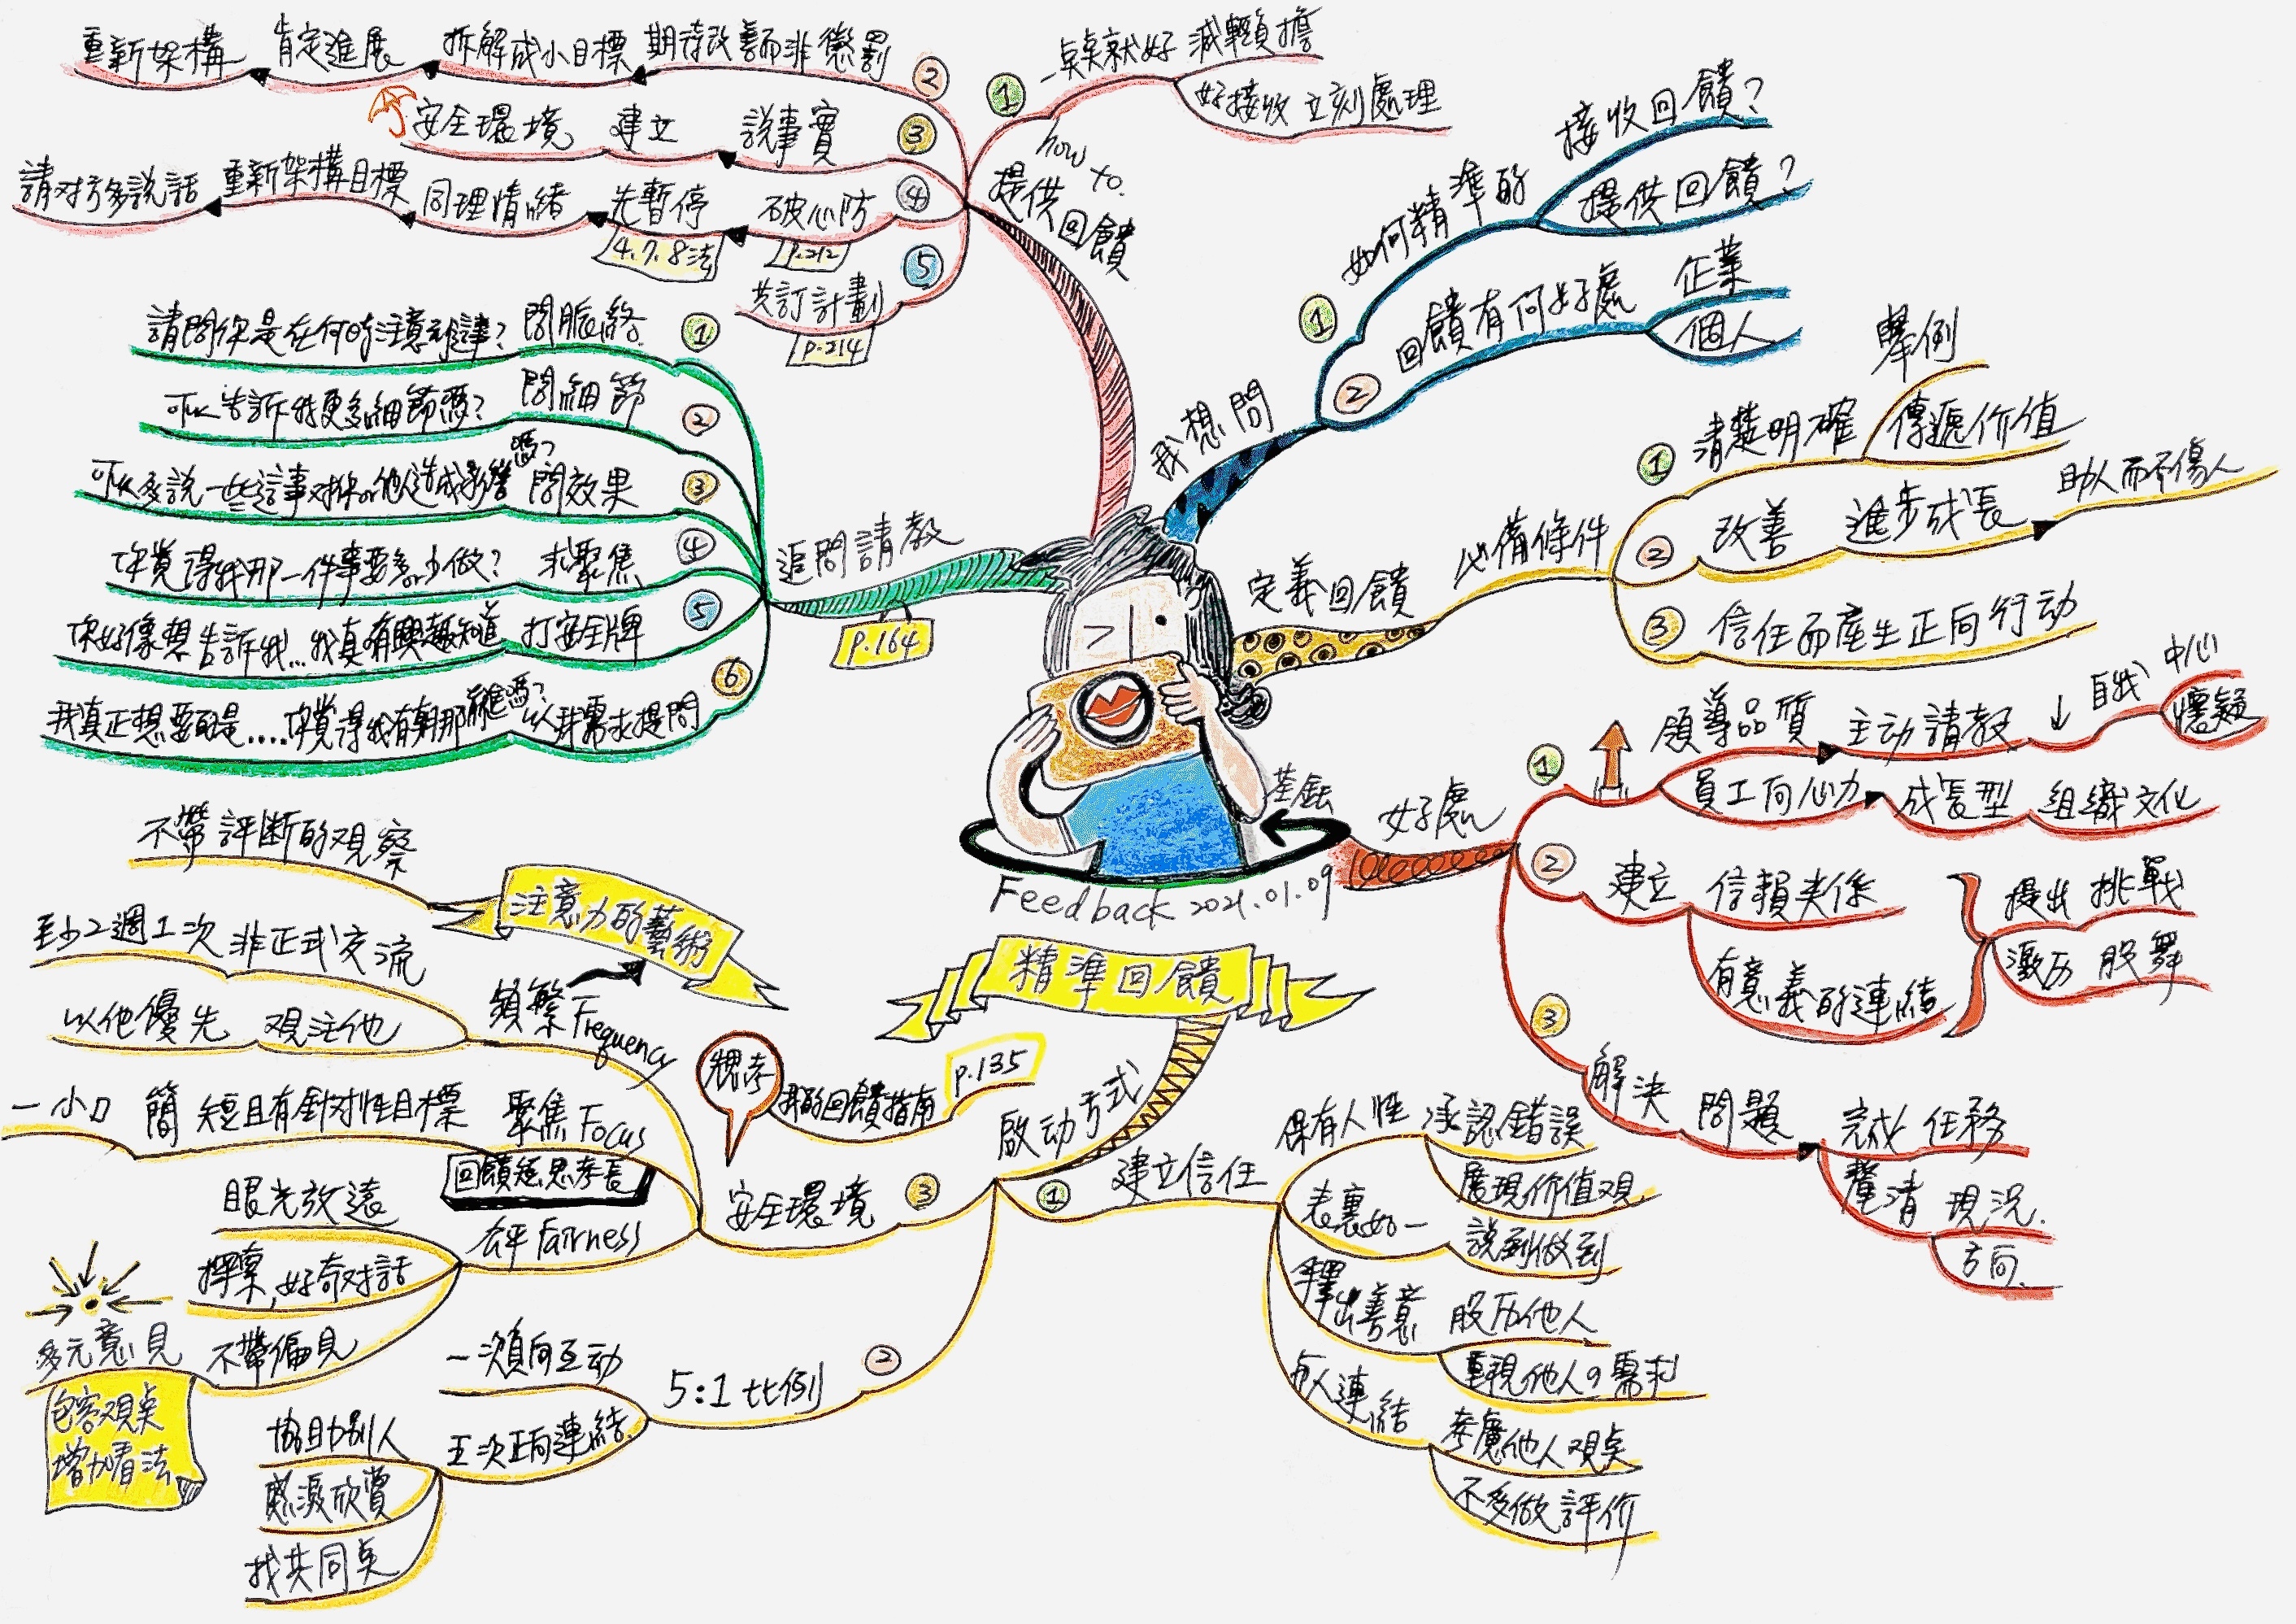 Feedback 2021.01.09
精準回饋
我想問
① 如何精準的
接收回饋?
提供回饋?
② 回饋有何好處
企業
個人
定義回饋
必備條件
① 清楚明確
舉例
傳遞价值
② 改善 進步成長
助人而不傷人
③ 信任而產生正向行动
基鉐
好處
①
領導品質 主动請教 ↓ 自我 中心
懷疑
員工向心力 成長型 組織文化
② 建立 信賴关係
有意義的連結
提出 挑戰
激历 股舞
③ 解決 問題
完成 任務
釐清 現況
方向
啟动方式
① 建立信任
保有人性 承認錯誤
展現价值观
表裏如一 說到做到
釋出善意 股历他人
重視他人の需求
与人連結 考慮他人观点
不多做評价
② 5:1比例
一次負向互动
五次正向連結
協助別人
感激欣賞
找共同点
③ 安全環境
我的回饋指南
P.135
頻繁 Frequency
注意力的藝術
不帶評断的观察
非正式交流 至少2週1次
观注他 以他優先
聚焦 Focus
短且有針对性目標 簡 一小口
回饋短思考長
公平 Fairness
眼光放遠
探索,好奇对話
不帶偏見
多元意見
包容观点
增加看法
追問請教
P.164
① 問脈絡 請問你是在何時注意到這事?
② 問細節 可以告訴我更多細節嗎?
③ 問效果 可以多說一些這事对我or他人造成影響嗎?
④ 求聚焦 你覺得我那一件事要多or少做?
⑤ 打安全牌 你好像想告訴我...我真有興趣知道
⑥ 以我需求提問 我真正想要的是....你覺得我有朝那前進嗎?
how to.
提供
回饋
① 一点就好 減輕負擔
好接收 立刻處理
② 期待改善而非懲罰 拆解成小目標 肯定進展 重新架構
③ 說事實 建立 安全環境
④ 破心防 先暫停 同理情緒 重新架構目標 請对方多說話
P.212
4.7.8法
⑤ 共訂計劃
P.214